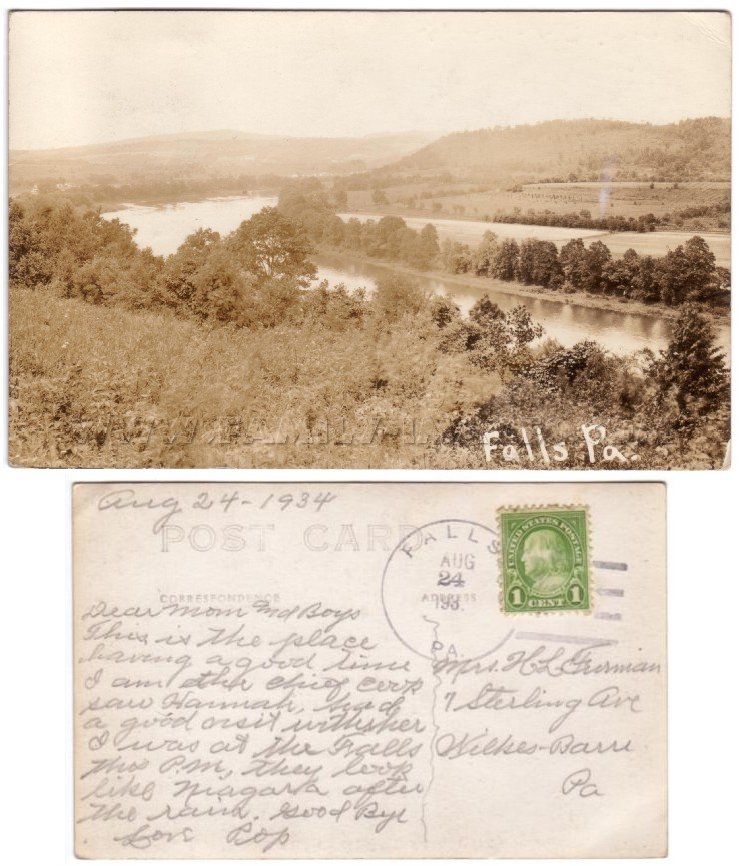 WWW.FAMILY
Falls Pa.
Aug 24-1934
POST CARD
CORRESPONDENCE
ADDRESS
FALLS
AUG
24
193
PA.
UNITED STATES POSTAGE
1 CENT 1
Dear Mom and Boys
This is the place
having a good time
I am the chief cook
saw Hannah, had
a good visit with her
I was at the Falls
this P.M, they look
like Niagara after
the rain. Good Bye
Love Pop
Mrs. H L Furman
7 Sterling Ave
Wilkes-Barre
Pa